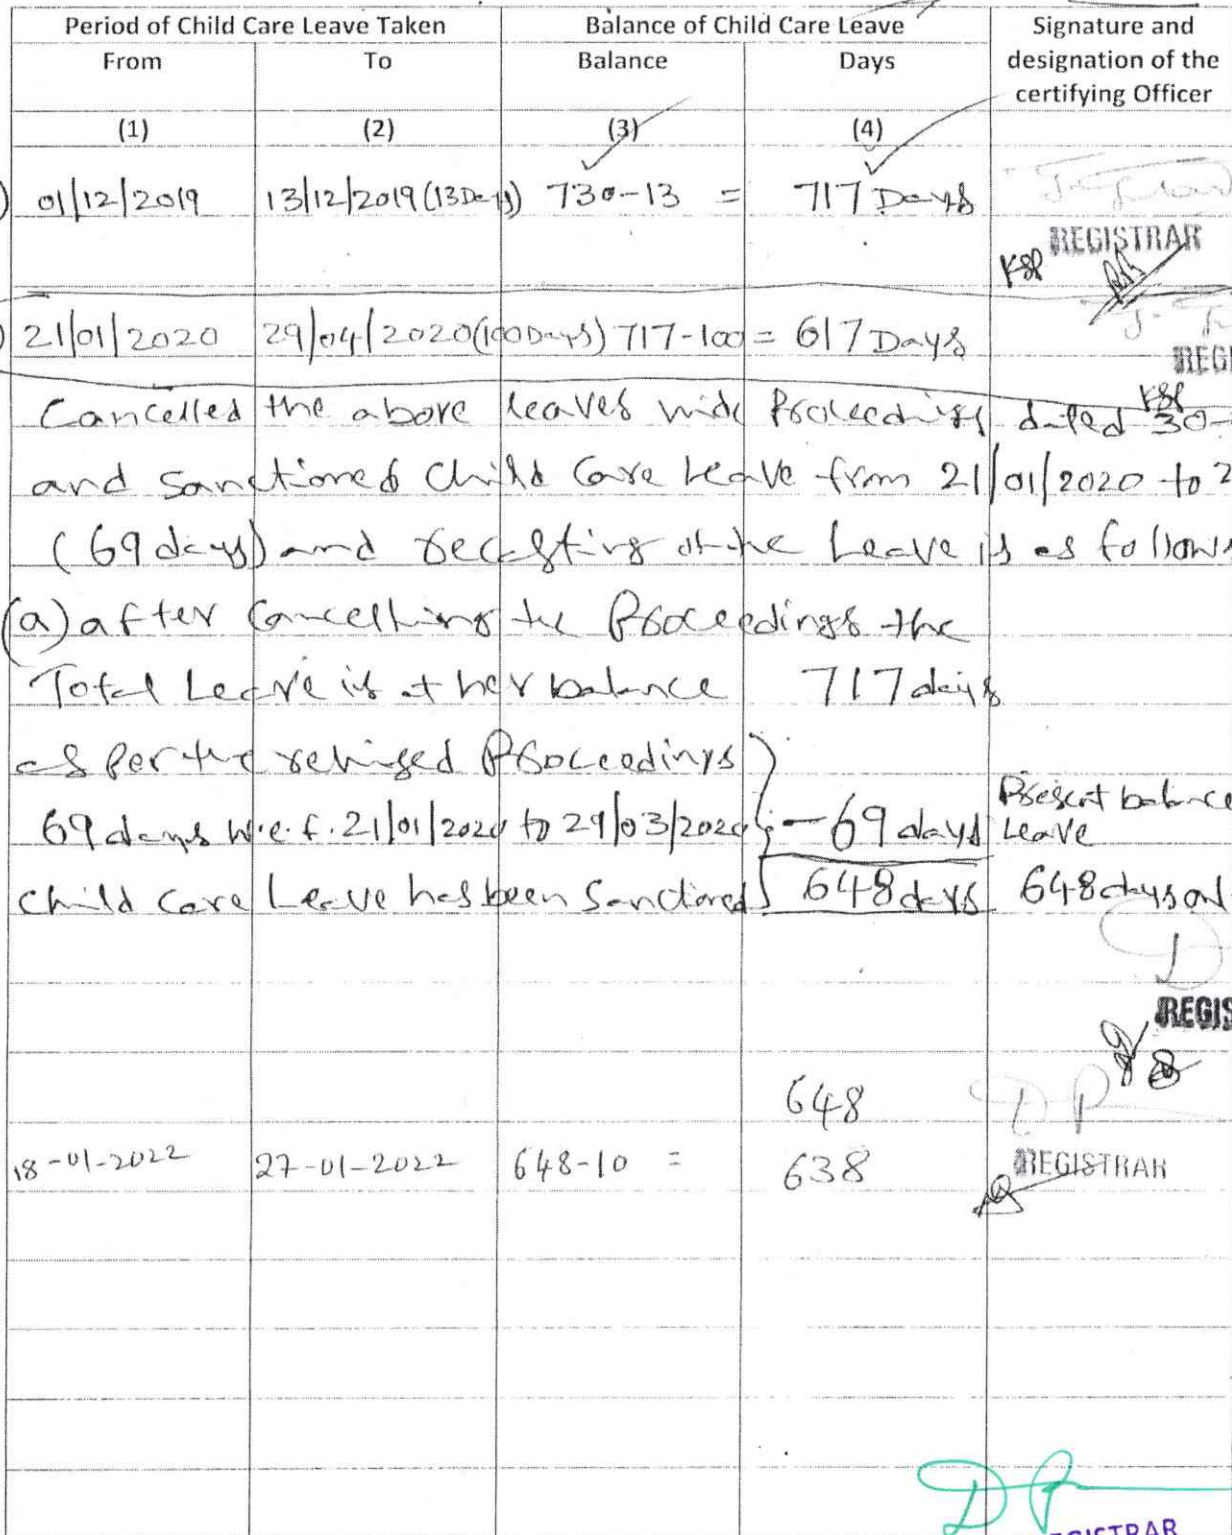 Period of Child Care Leave Taken Balance of Child Care Leave Signature and
From To Balance Days designation of the
certifying Officer
(1) (2) (3) (4)
01/12/2019 13/12/2019 (13 Days) 730-13 = 717 Days
REGISTRAR
KSP
21/01/2020 29/04/2020 (100 Days) 717-100 = 617 Days
REGI
KSP
Cancelled the above leaves vide Proceedings dated 30-
and sanctioned Child Care Leave from 21/01/2020 to 2
(69 days) and recasting of the Leave is as follows
(a) after Cancelling the Proceedings the
Total Leave is at her balance 717 days
as per the revised Proceedings
69 days w.e.f. 21/01/2020 to 29/03/2020 - 69 days Present balance Leave
Child Care Leave has been Sanctioned 648 days 648 days onl
REGIS
648
18-01-2022 27-01-2022 648-10 = 638 REGISTRAR
D P
REGISTRAR